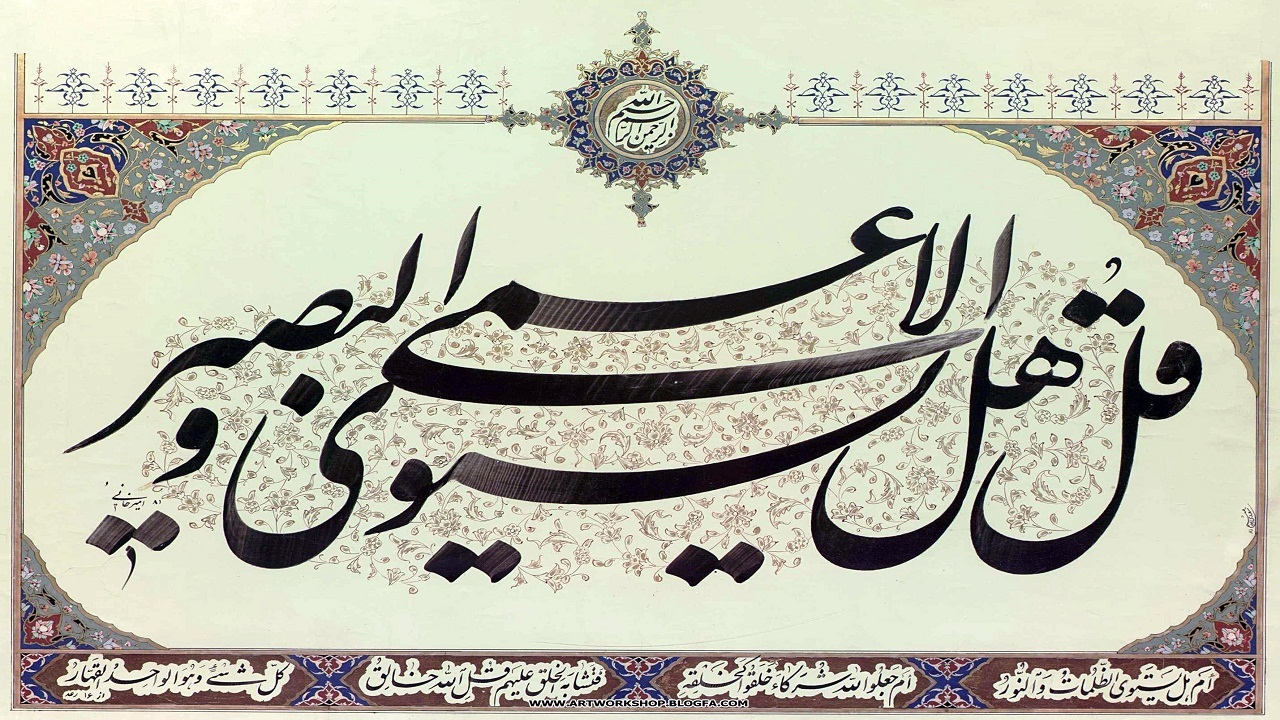 بسم الله الرحمن الرحیم
قل هل یستوی الاعمی والبصیر
امیرخانی ۸۱
ام هل یستوی الظلمات والنور
ام جعلوا لله شرکاء خلقوا کخلقه
فتشابه الخلق علیهم قل الله خالق
کل شیء وهو الواحد القهار
WWW.ARTWORKSHOP.BLOGFA.COM